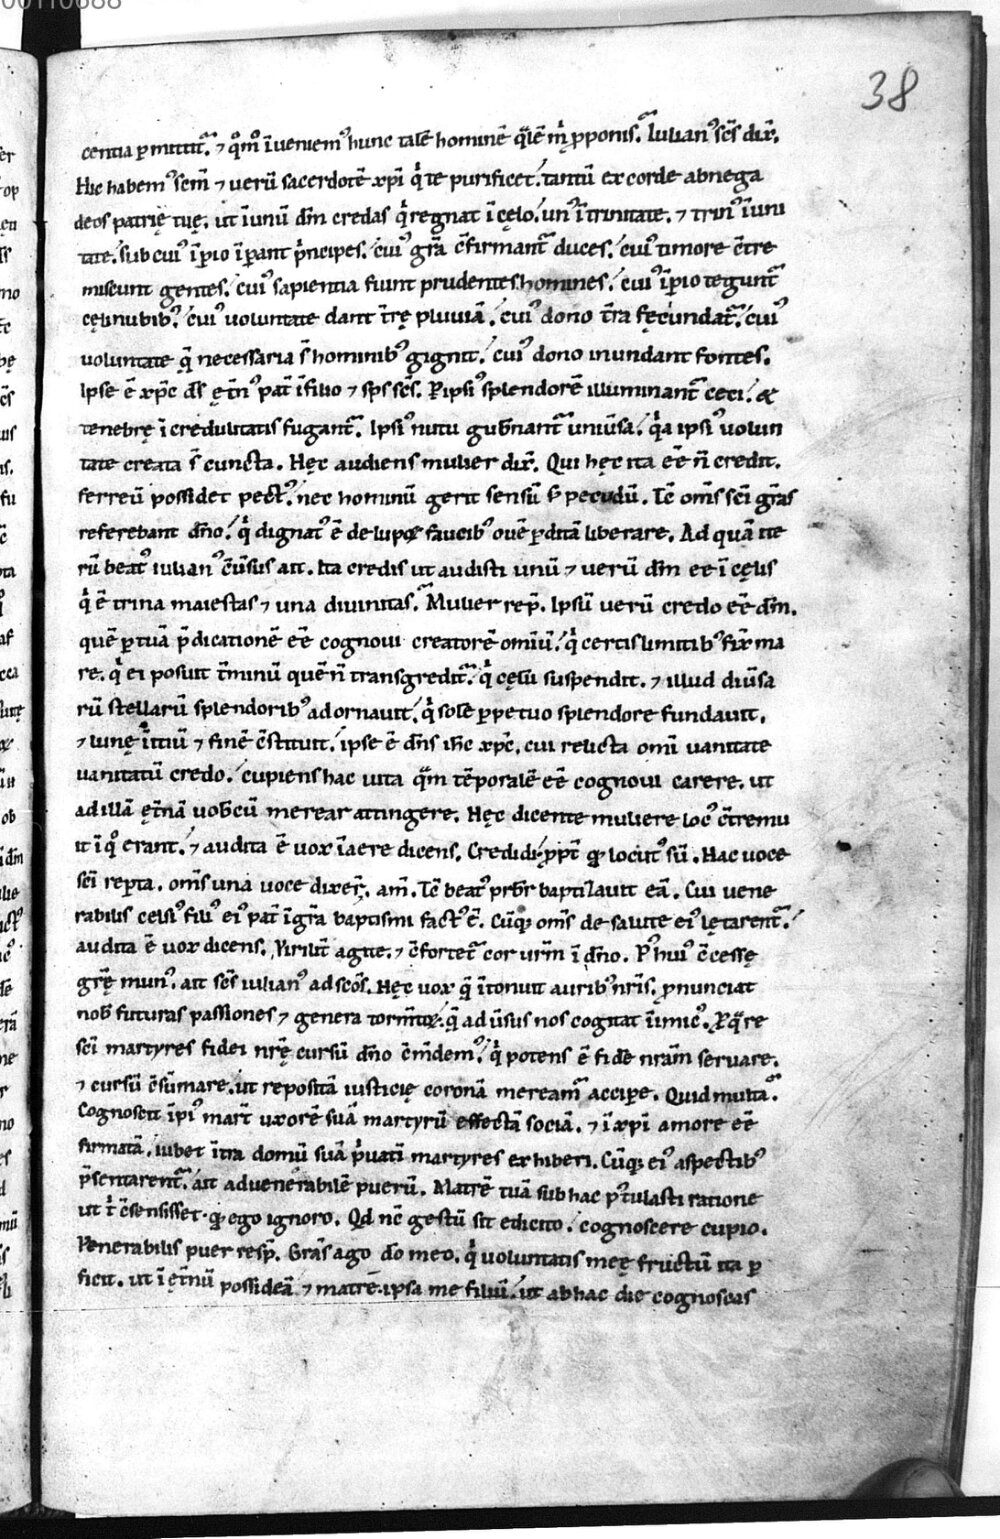 38
centia ꝑmittit᷑. ⁊ qͦm̊ īueniemꝰ hunc talē hominē qᷓlē m̓ ꝓponis. Iulianꝰ sc̄s dix̄.
Hic habemꝰ sc̄m̄ ⁊ uerū sacerdotē xp̄i qͥ te purificet. tantū ex corde abnega
deos patrię tuę. ut īunū dm̄ credas qͥ regnat ī cęlo. unꝰ ī trinitate. ⁊ trinꝰ ī uni
tate. sub cuiꝰ īꝑio īꝑant pͥncipes. cuiꝰ gr̄a c̄firmant᷑ duces. cuiꝰ timore c̄tre
miscunt gentes. cuiꝰ sapientia fiunt prudentes homines. cuiꝰ īꝑio tegunt᷑
cęli nubibꝰ. cuiꝰ uoluntate dant t̄rę pluuiā. cuiꝰ dono t̄ra fęcundat᷑. cuiꝰ
uoluntate qͣ necessaria s̄ hominibꝰ gignit. cuiꝰ dono inundant fontes.
Ipse ē xp̄c ds̄ ęt̄nꝰ pat̄ ī filio ⁊ sp̄s sc̄s. P ipsiꝰ splendorē illuminant᷑ ceci. &
tenebrę ī credulitatis fugant᷑. Ipsiꝰ nutu gub̄nant᷑ uniūsa. qͥa ipsiꝰ uolun
tate creata s̄ cuncta. Hęc audiens mulier dix̄. Qui hęc ita eē n̄ credit.
ferreū possidet pectꝰ. nec hominū gerit sensū s; pecudū. Tc̄ oms̄ sc̄i grās
referebant dn̄o. qͥ dignatꝰ ē de lupo faucibꝰ ouē ꝑditā liberare. Ad quā ite
rū beatꝰ iulianꝰ c̄ūsus ait. Ita credis ut audisti unū ⁊ uerū dm̄ eē ī cęlis
qͥ ē trina maiestas ⁊ una diuinitas. Mulier resp̄. Ipsū uerū credo eē dm̄.
quē ꝑ tuā p̄dicationē eē cognoui creatorē omiū. qͥ certis limitibꝰ fix̄ ma
re. qͥ ei posuit t̄minū quē n̄ transgredit᷑. qͥ cęlū suspendit. ⁊ illud diūsa
rū stellarū splendoribꝰ adornauit. qͥ solē ꝑpetuo splendore fundauit.
⁊ lunę initiū ⁊ finē c̄stituit. ipse ē dn̄s ih̄c xp̄c. cui relicta omī uanitate
uanitatū credo. cupiens hac uita qᷓm tēporalē eē cognoui carere. ut
ad illā ęt̄nā uobcū merear attingere. Hęc dicente muliere locꝰ c̄tremu
it ī qͦ erant. ⁊ audita ē uox ī aere dicens. Credidi ꝓpt̄ qd̄ locutꝰ sū. Hac uoce
sc̄i reperta. oms̄ una uoce dixer̄. am̄. Tc̄ beatꝰ prb̄r baptizauit eā. Cui uene
rabilis celsiꝰ filiꝰ eiꝰ pat̄ ī gr̄a baptismi factꝰ ē. Cūq; oms̄ de salute eiꝰ lętarent᷑.
audita ē uox dicens. Virilit̄ agite. ⁊ c̄fortet᷑ cor ur̄m ī dn̄o. Pꝰ huiꝰ c̄cessę
gr̄ę munꝰ. ait sc̄s iulianꝰ ad sc̄os. Hęc uox qͣ ītonuit auribꝰ nr̄is. ꝓnunciat
nob̄ futuras passiones ⁊ genera torm̄toꝝ. qͣ ad ūsus nos cogitat īimicꝰ. Ꝓqᷓre
sc̄i martyres fidei nr̄ę cursū dn̄o c̄m̄demꝰ. qͥ potens ē fidē nr̄am seruare.
⁊ cursū c̄sūmare. ut repositā iusticię coronā mereamꝰ accipe. Quid multa.
Cognoscit īpiꝰ mart̄ uxorē suā martyrū effectā sociā. ⁊ ī xp̄i amore eē
firmatā. iubet ītra domū suā pͥuatī martyres exhiberi. Cūq; eiꝰ aspectibꝰ
p̄sentarent᷑. ait ad uenerabilē puerū. Matrē tuā sub hac pꝰtulasti ratione
ut t̓ c̄sensisset. qd̄ ego ignoro. Qd nc̄ gestū sit edicito. cognoscere cupio.
Venerabilis puer resp̄. Grās ago do̅ meo. qͥ uoluntatis meę fructū ita ꝑ
ficit. ut ī ęt̄nū possideā ⁊ matrē. ipsa me filiū. ut ab hac die cognoscas